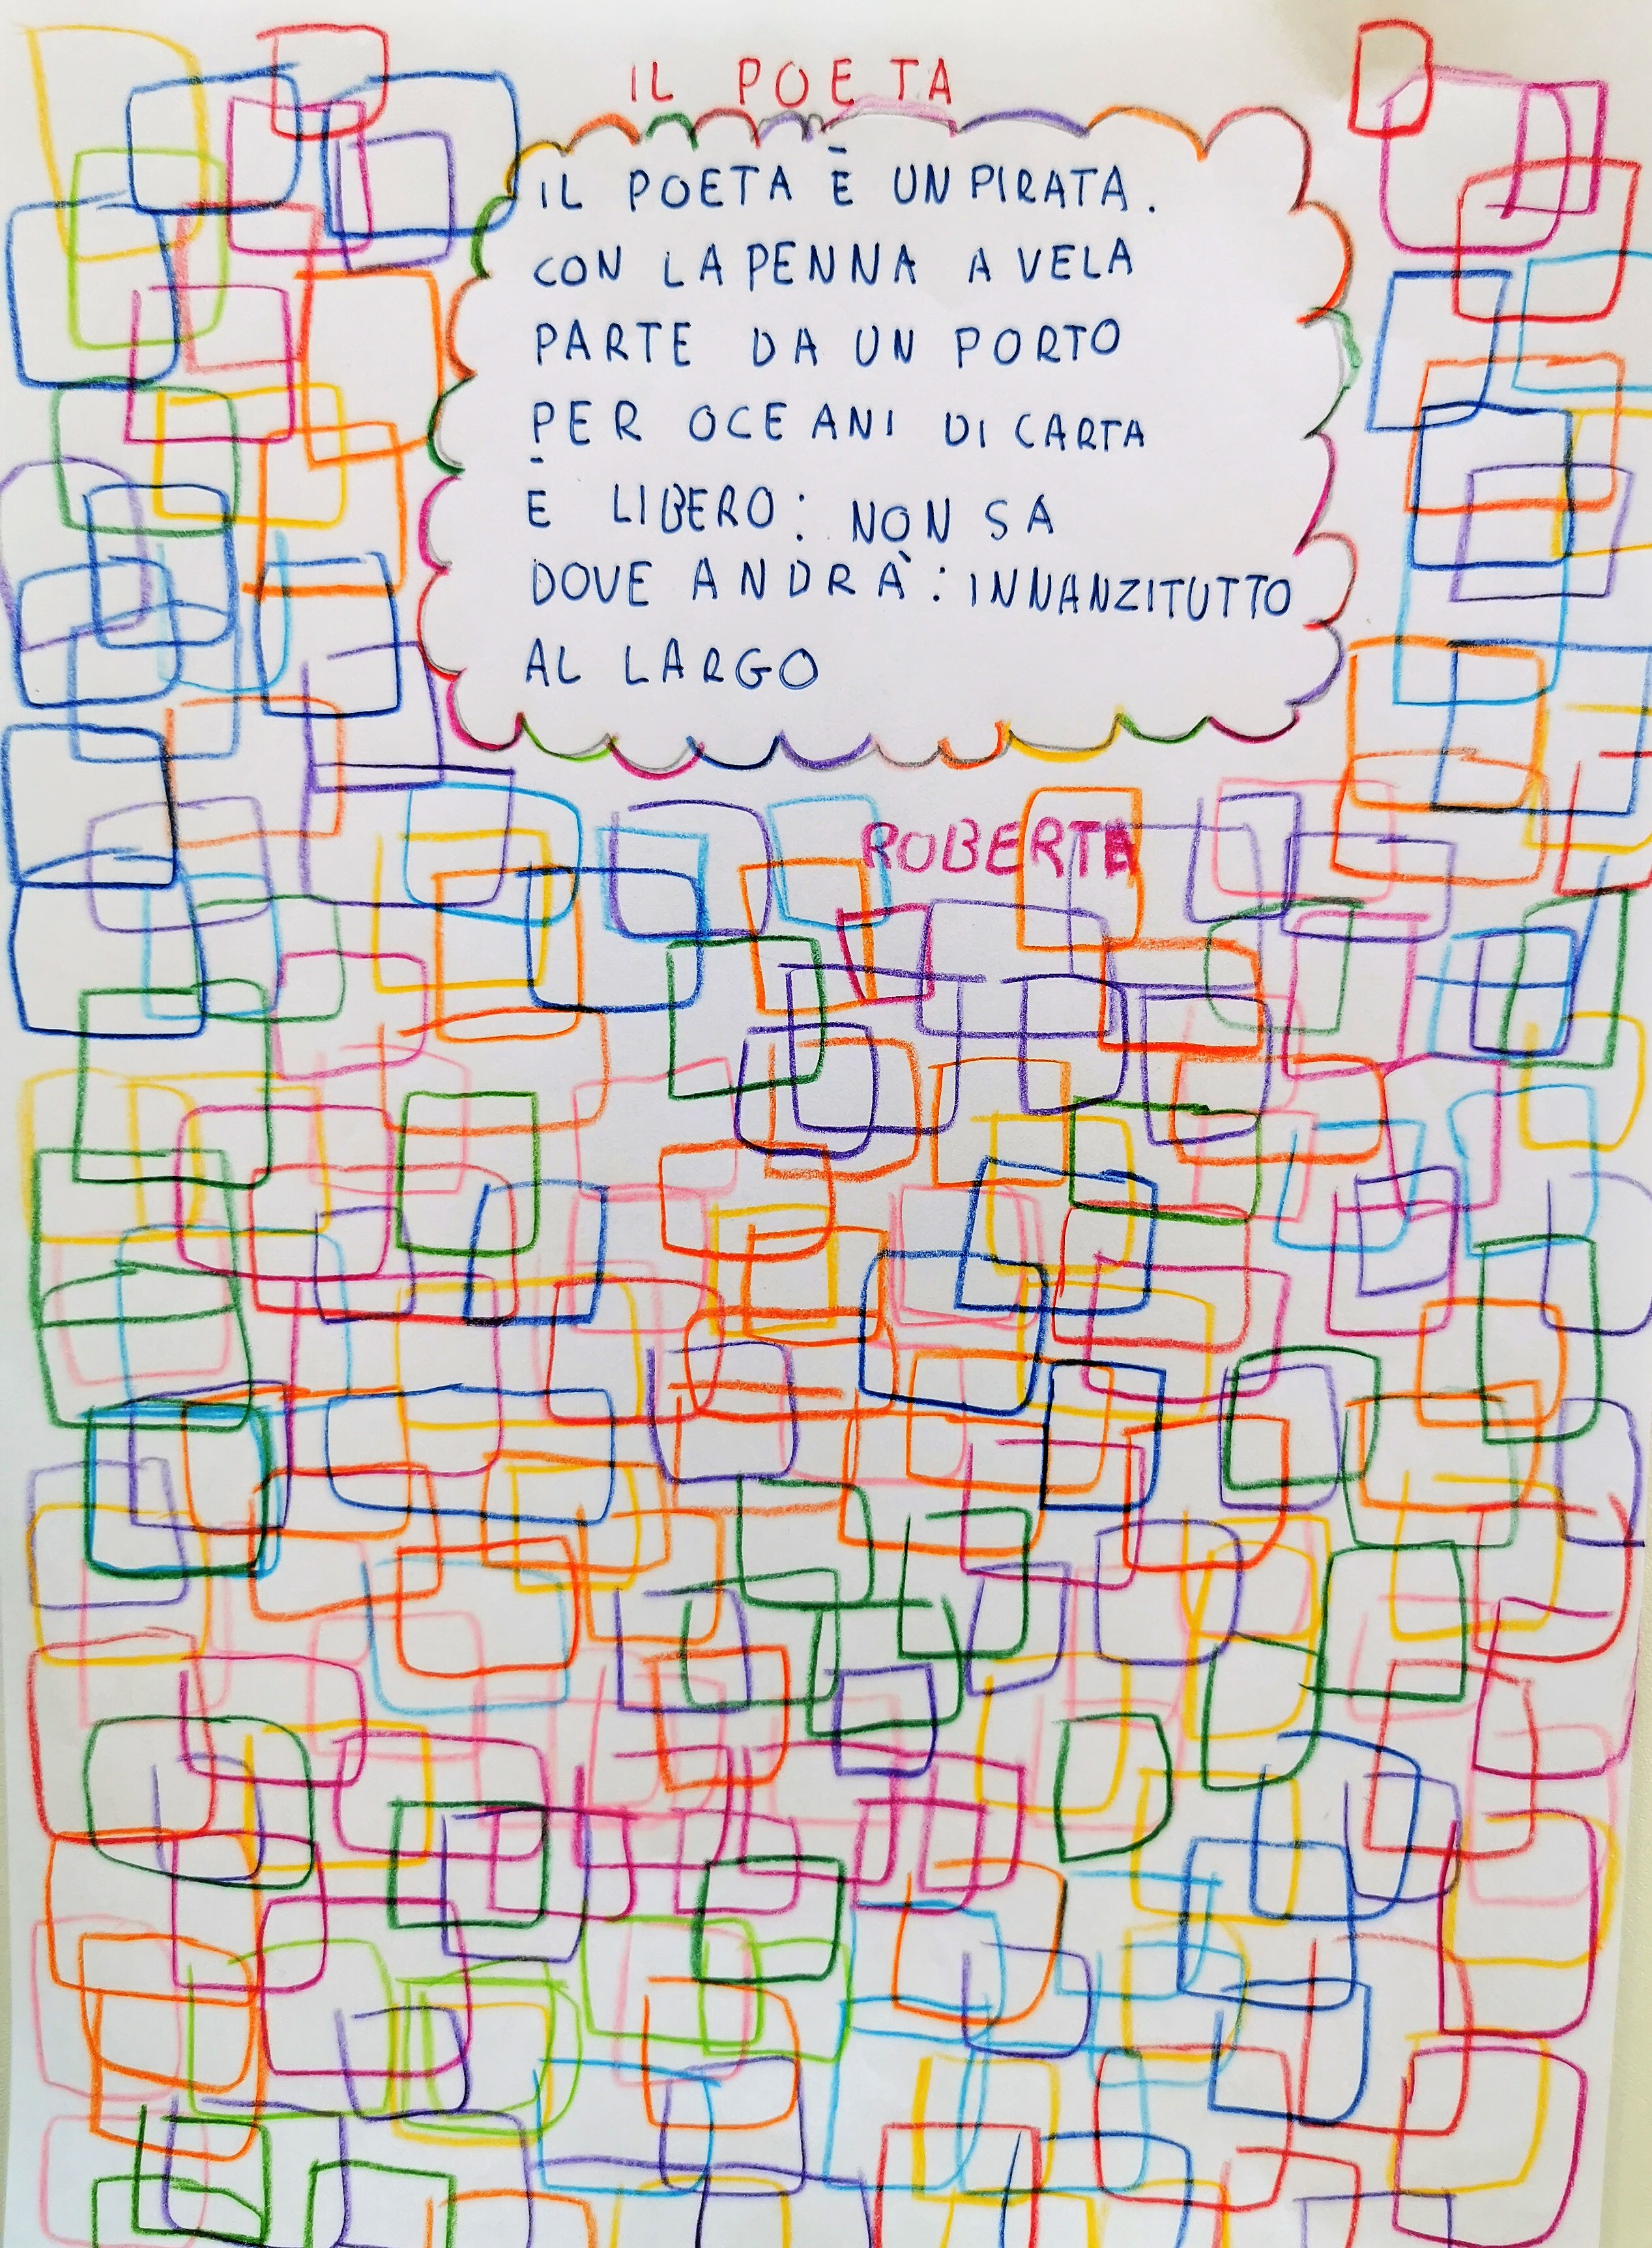 IL POETA
IL POETA È UN PIRATA.
CON LA PENNA A VELA
PARTE DA UN PORTO
PER OCEANI DI CARTA
È LIBERO: NON SA
DOVE ANDRÀ: INNANZITUTTO
AL LARGO
ROBERTA